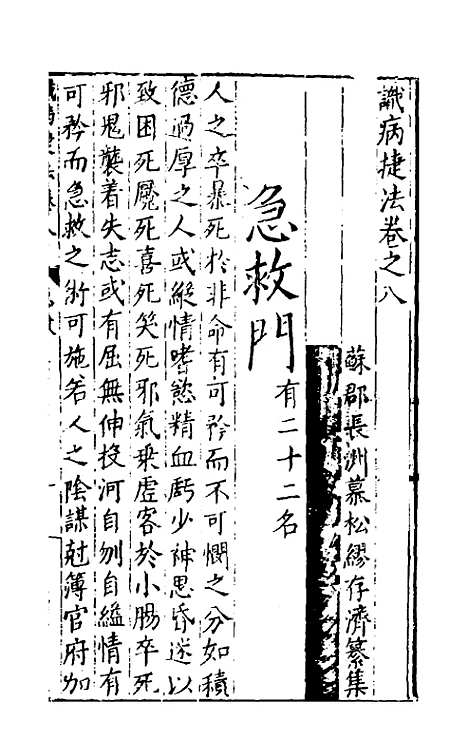 識病捷法卷之八
蘇郡長洲慕松繆存濟纂集
急救門
有二十二名
人之卒暴死於非命有可矜而不可憫之分如積
德過厚之人或縱情嗜慾精血虧少神思昏迷以
致困死魘死喜死笑死邪氣乗虚客於小腸卒死
邪鬼襲着失志或有屈無伸投河自刎自縊情有
可矜而急救之術可施若人之陰謀尅簿官府加